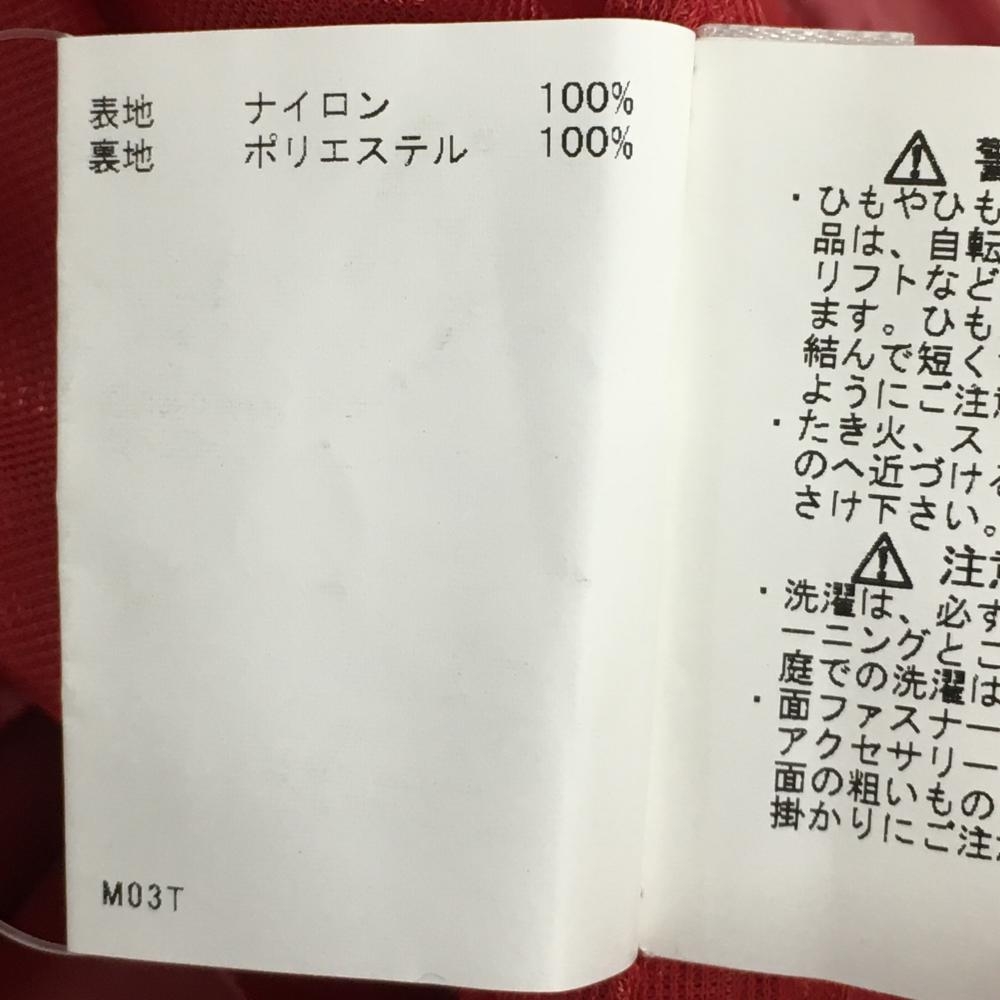 表地 ナイロン 100%
裏地 ポリエステル 100%
M03T
・ひもやひも
品は、自転
リフトなど
ます。ひも
結んで短く
ようにご注意
・たき火、ス
のへ近づける
さけ下さい。
注意
・洗濯は、必ず
ーニングとこ
庭での洗濯は
・面ファスナー
アクセサリー
面の粗いもの
掛かりにご注